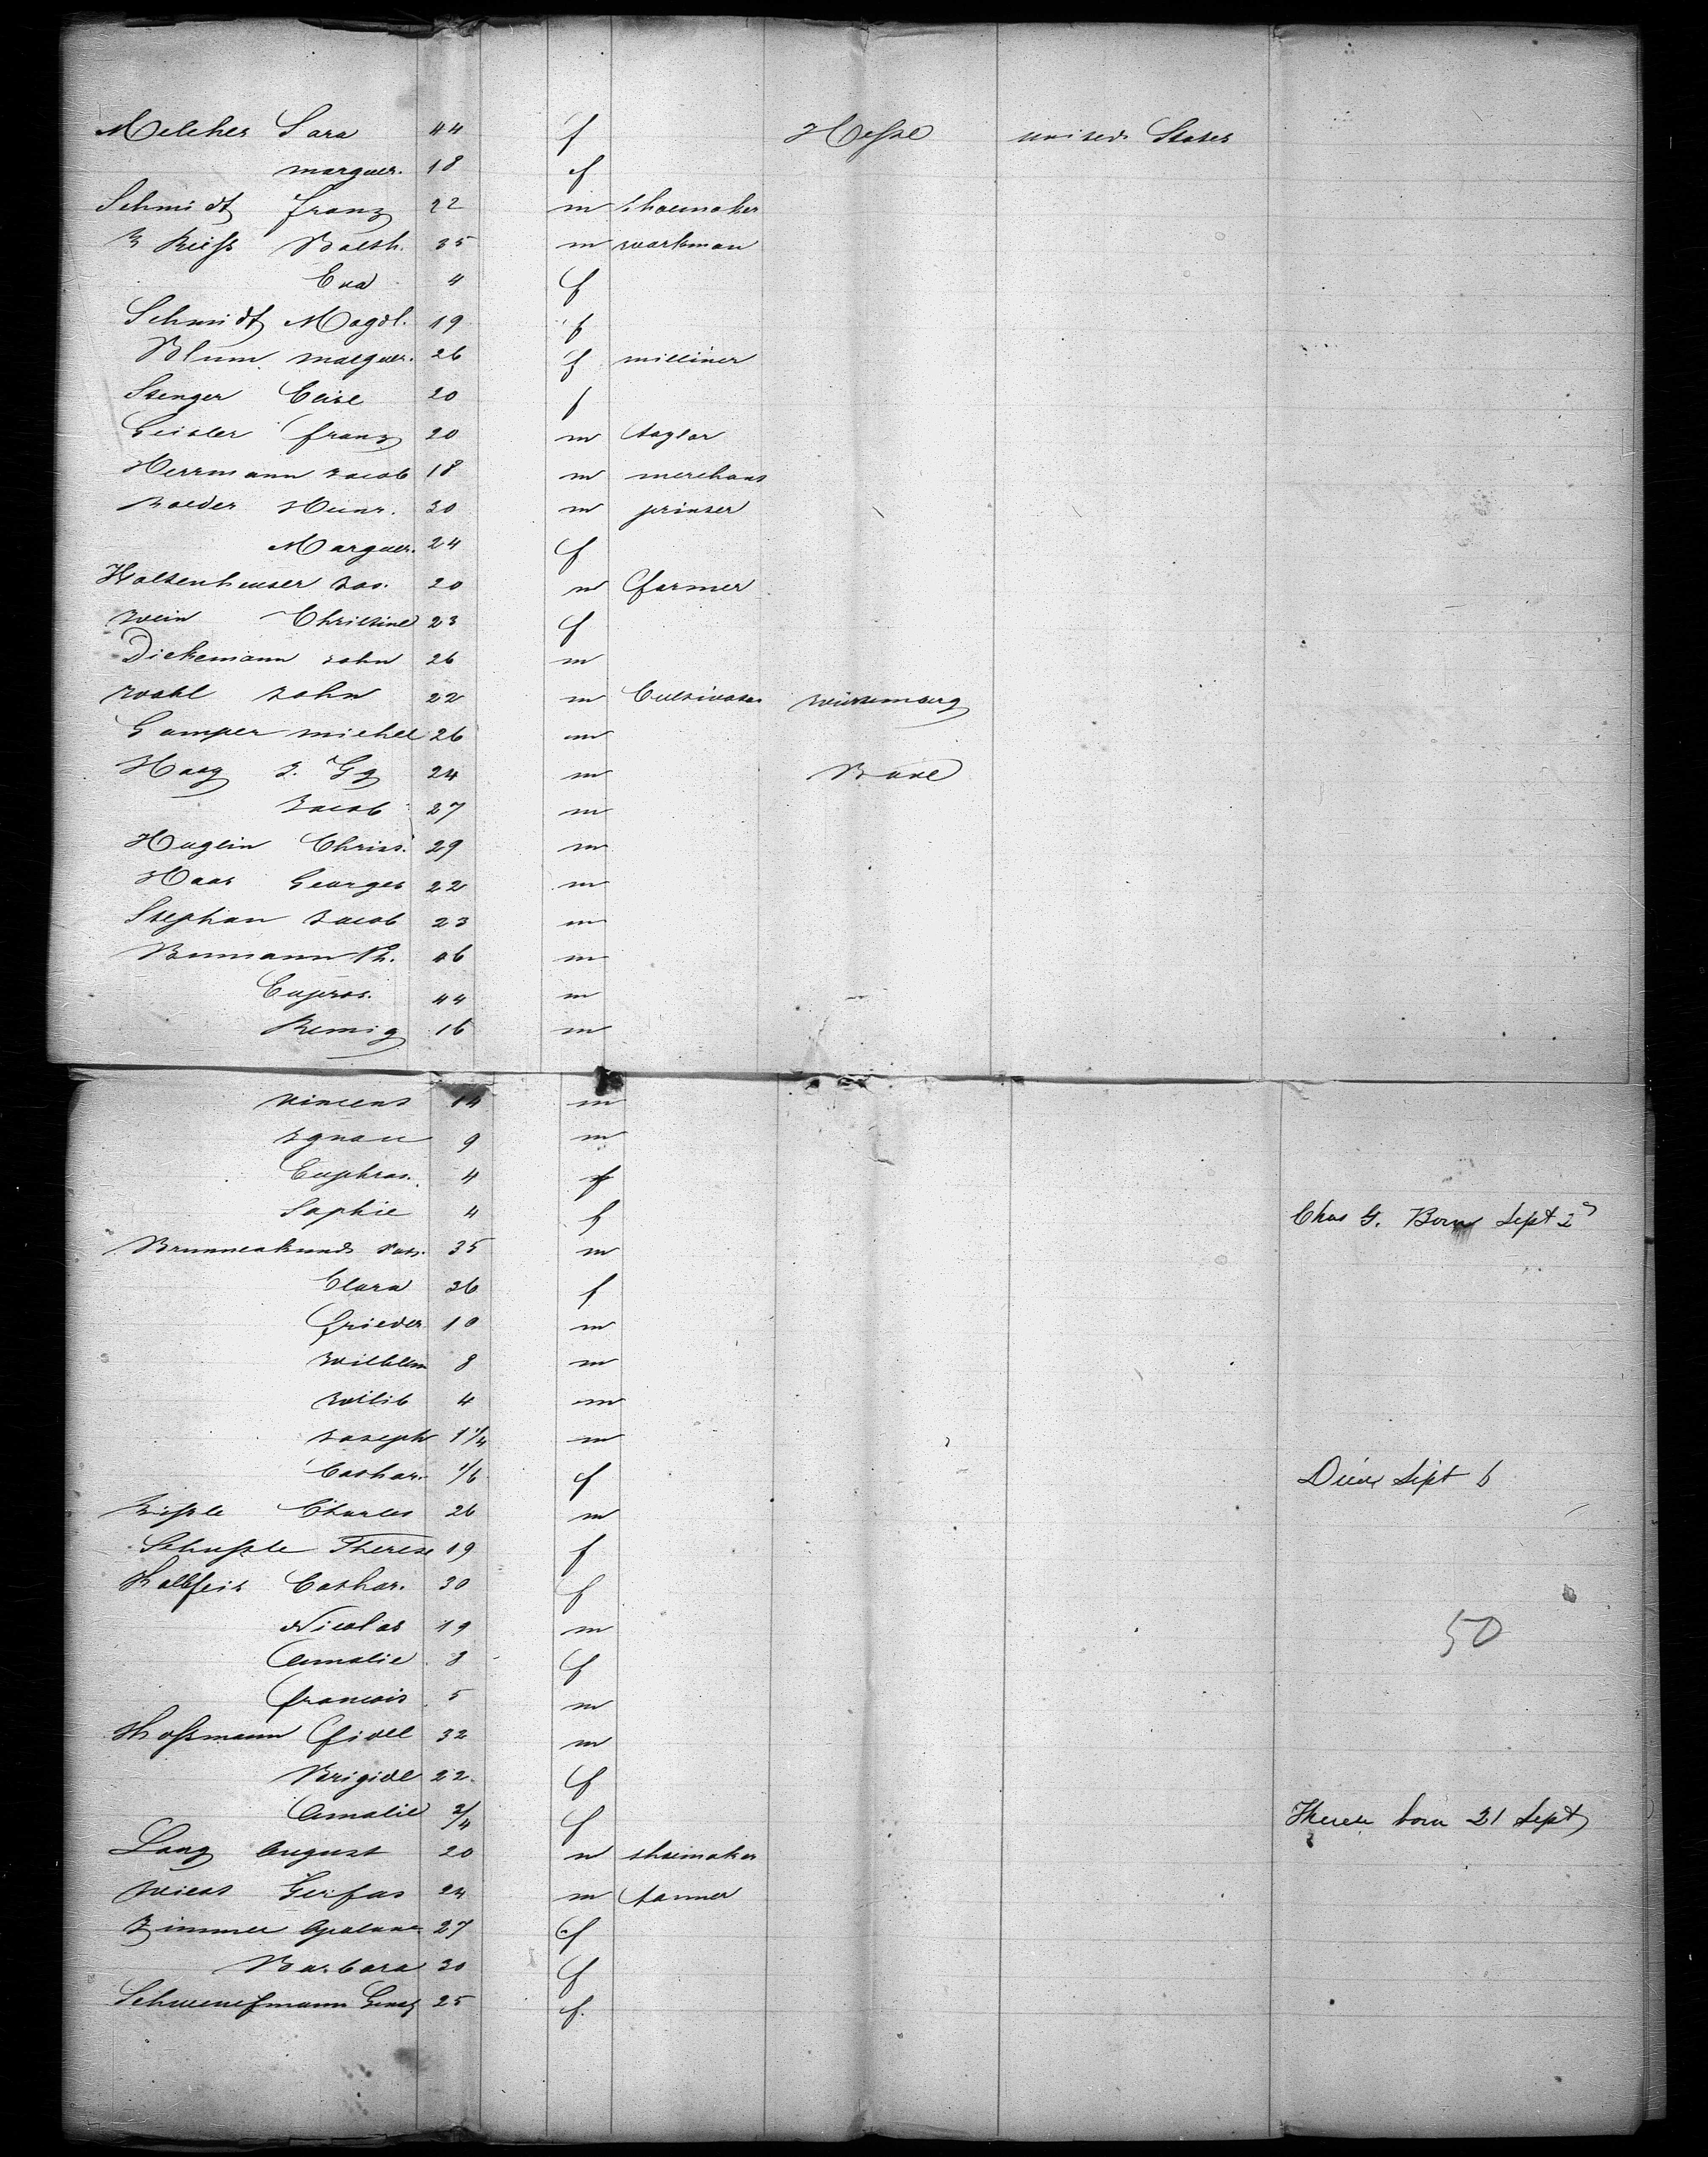 Melcher Sara 44 f Hesse united States
marguer. 18 f
Schmidt franz 22 m shoemaker
Balth. 35 m workman
Eva 4 f
Schmidt Magdl. 19 f
Blum marguer. 26 f milliner
Stenger Elise 20 f
Geisler franz 20 m taylor
Herrmann Jacob 18 m merchant
Roeder Heinr. 30 m printer
Marguer. 24 f
Jos. 20 m farmer
Wein Christine 23 f
Dickemann John 26 m
Wahl John 22 m Cultivator Würtemberg
Gamper michel 26 m
Haag J. Gg 24 m Bade
Jacob 27 m
Huglin Christ. 29 m
Haas Georges 22 m
Stephan Jacob 23 m
Bumann 46 m
Euphros. 44 m
Remig 16 m
Vincent 14 m
Ignace 9 m
Euphros. 4 f
Sophie 4 f Chas G. Born Sept 2
35 m
Clara 36 f
frieder 10 m
Wilhlem 8 m
Wilib 4 m
Joseph 1 1/4 m
Cathar. 1/6 f Died Sept 6
Charles 26 m
Schussle Therese 19 f
Cathar. 30 f
Nicolas 19 m 50
Amalie 8 f
francois 5 m
fidel 32 m
Brigide 22 f
Amalie 3/4 f Therese born 21 Sept
Lang August 20 m shoemaker
24 m tanner
Zimmer 27 f
Barbara 30 f
25 f.